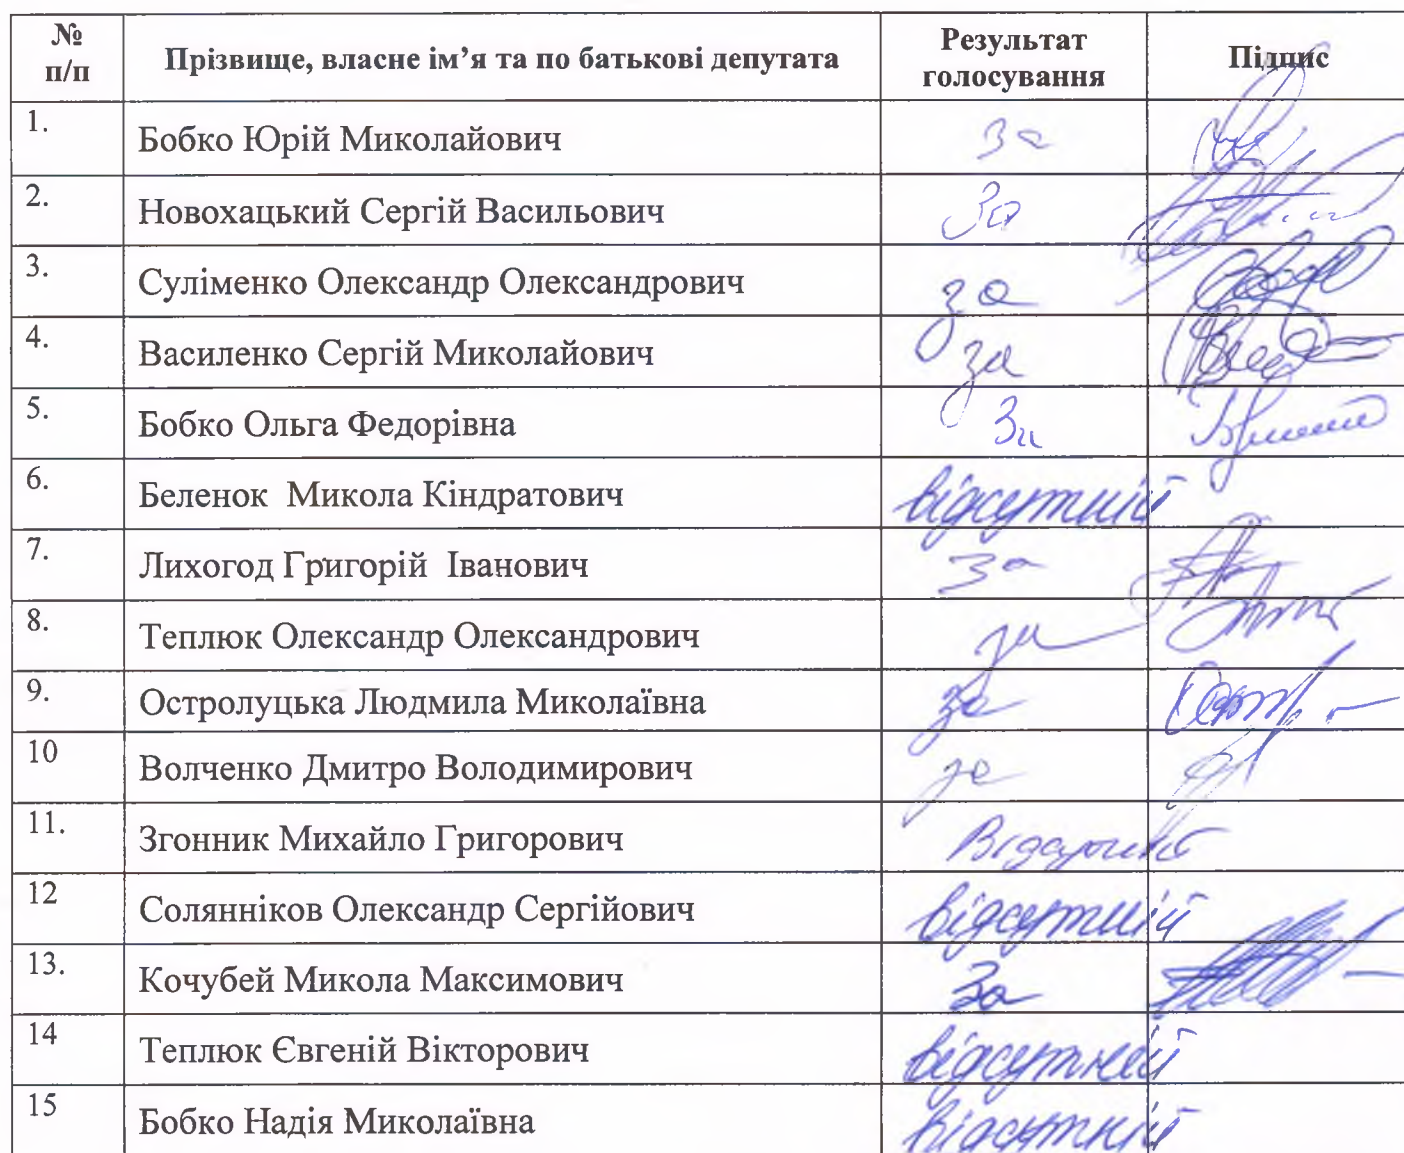 № п/п Прізвище, власне ім’я та по батькові депутата Результат голосування Підпис
1. Бобко Юрій Миколайович За
2. Новохацький Сергій Васильович За
3. Суліменко Олександр Олександрович за
4. Василенко Сергій Миколайович за
5. Бобко Ольга Федорівна За
6. Беленок Микола Кіндратович відсутній
7. Лихогод Григорій Іванович За
8. Теплюк Олександр Олександрович за
9. Остролуцька Людмила Миколаївна за
10 Волченко Дмитро Володимирович за
11. Згонник Михайло Григорович Відсутній
12 Солянніков Олександр Сергійович відсутній
13. Кочубей Микола Максимович За
14 Теплюк Євгеній Вікторович відсутній
15 Бобко Надія Миколаївна відсутній